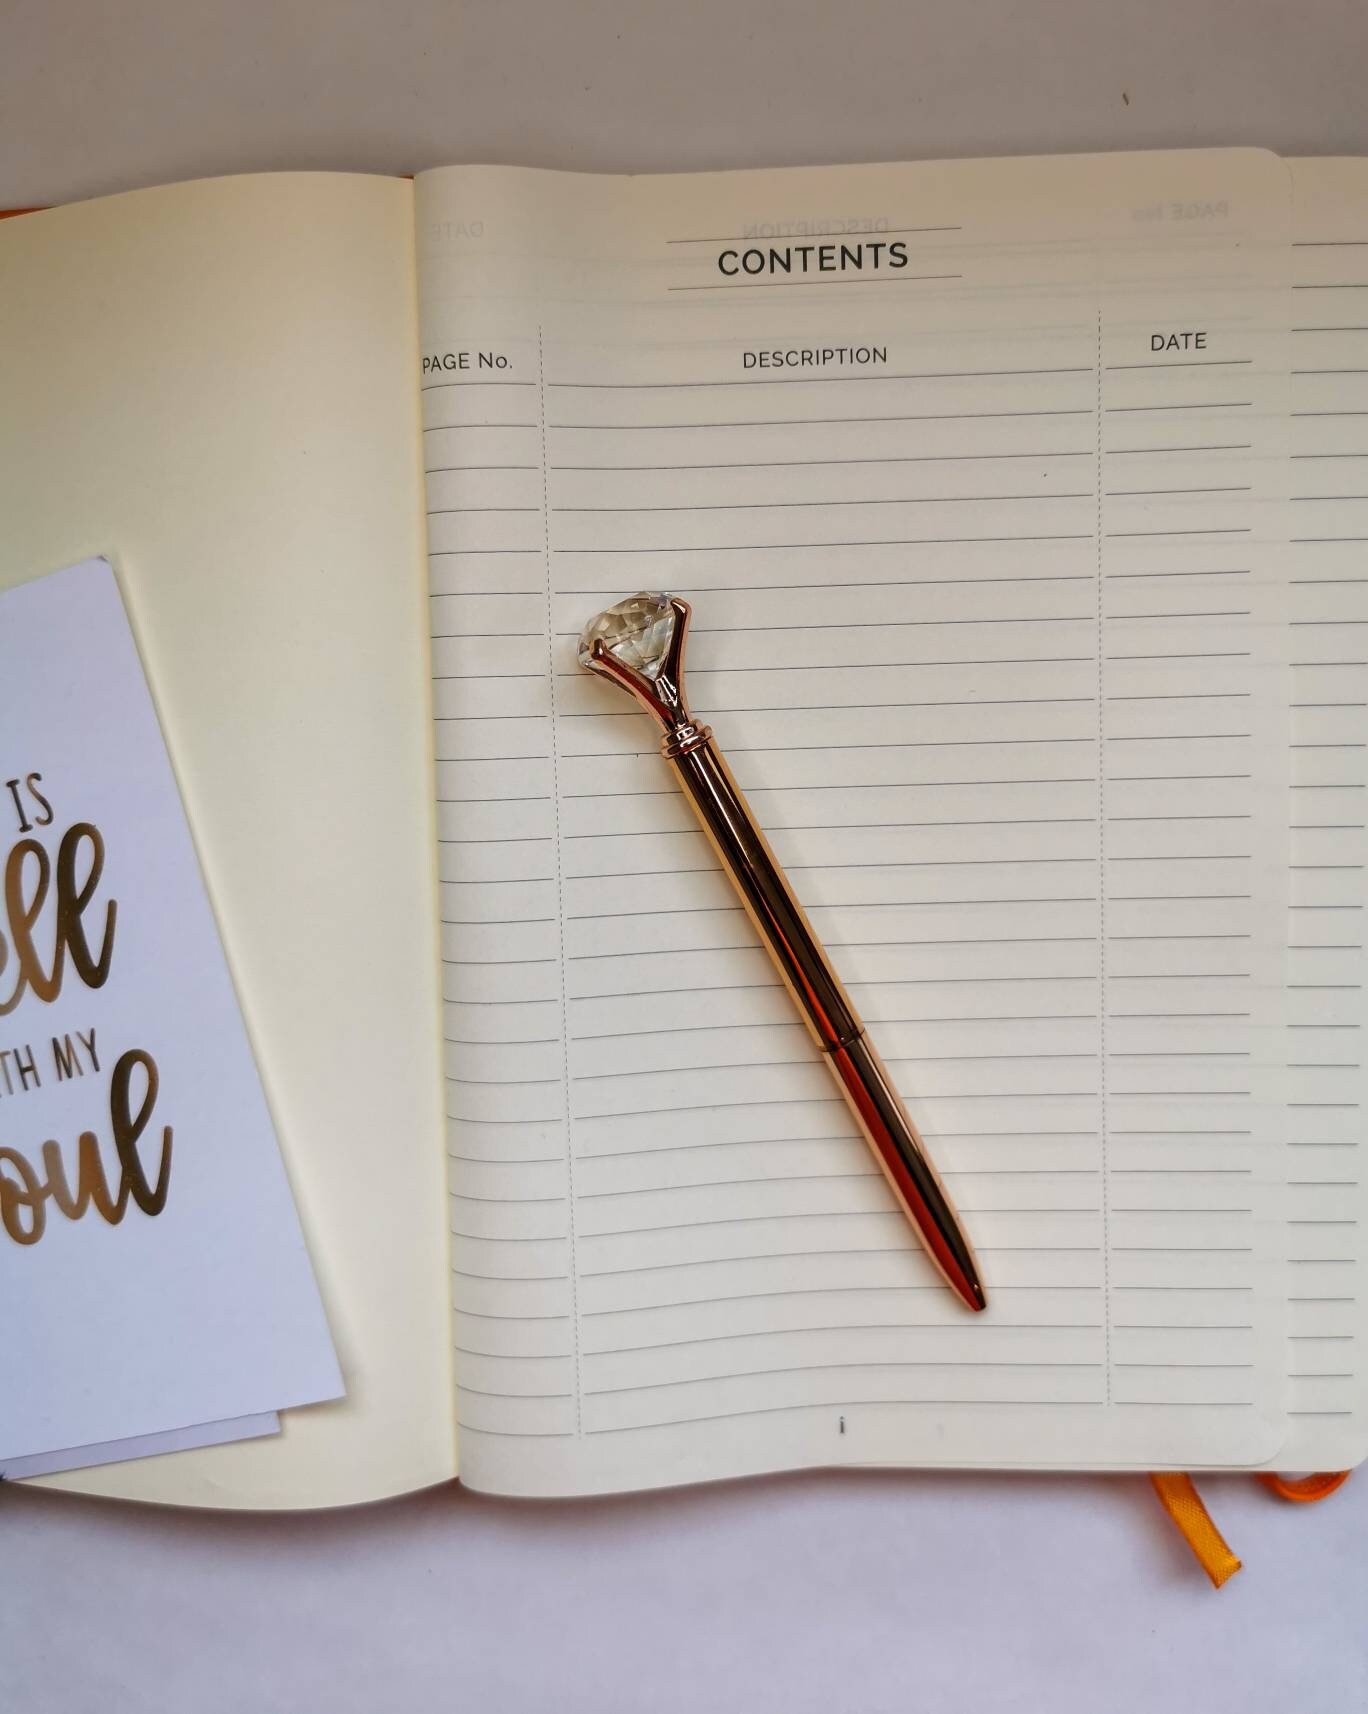 CONTENTS
PAGE No. DESCRIPTION DATE
IS
ell
TH MY
oul
i